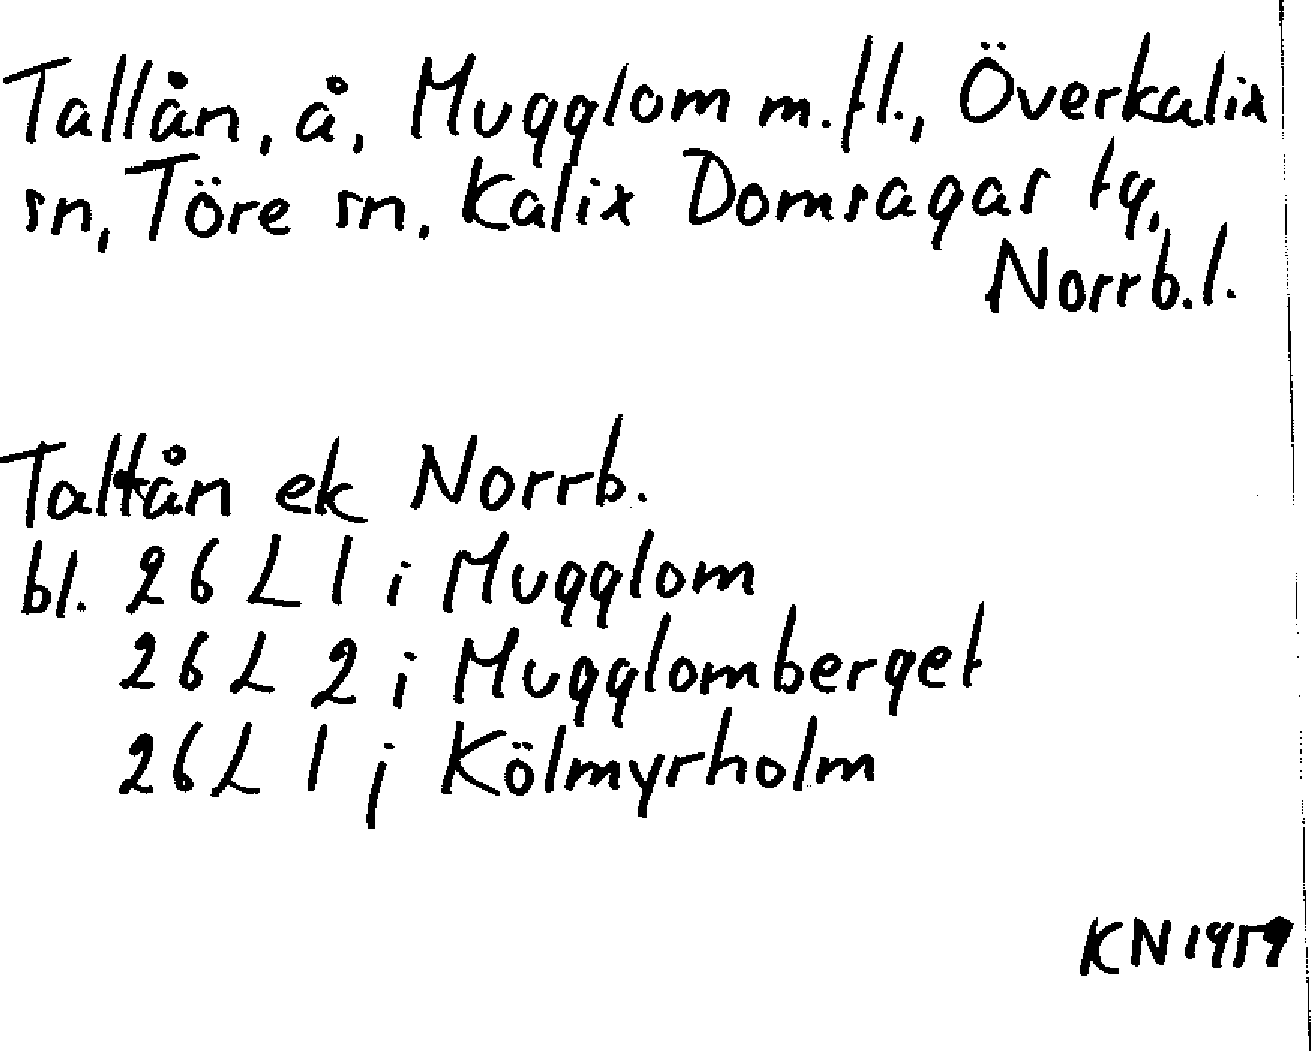 Tallån, å, Mugglom m.fl., Överkalix
sn, Töre sn. Kalix Domsagas tg,
Norrb.l.
Taltån ek Norrb.
bl. 26 L 1 i Mugglom
26 L 2 i Mugglomberget
26 L 1 j Kölmyrholm
KN 1959